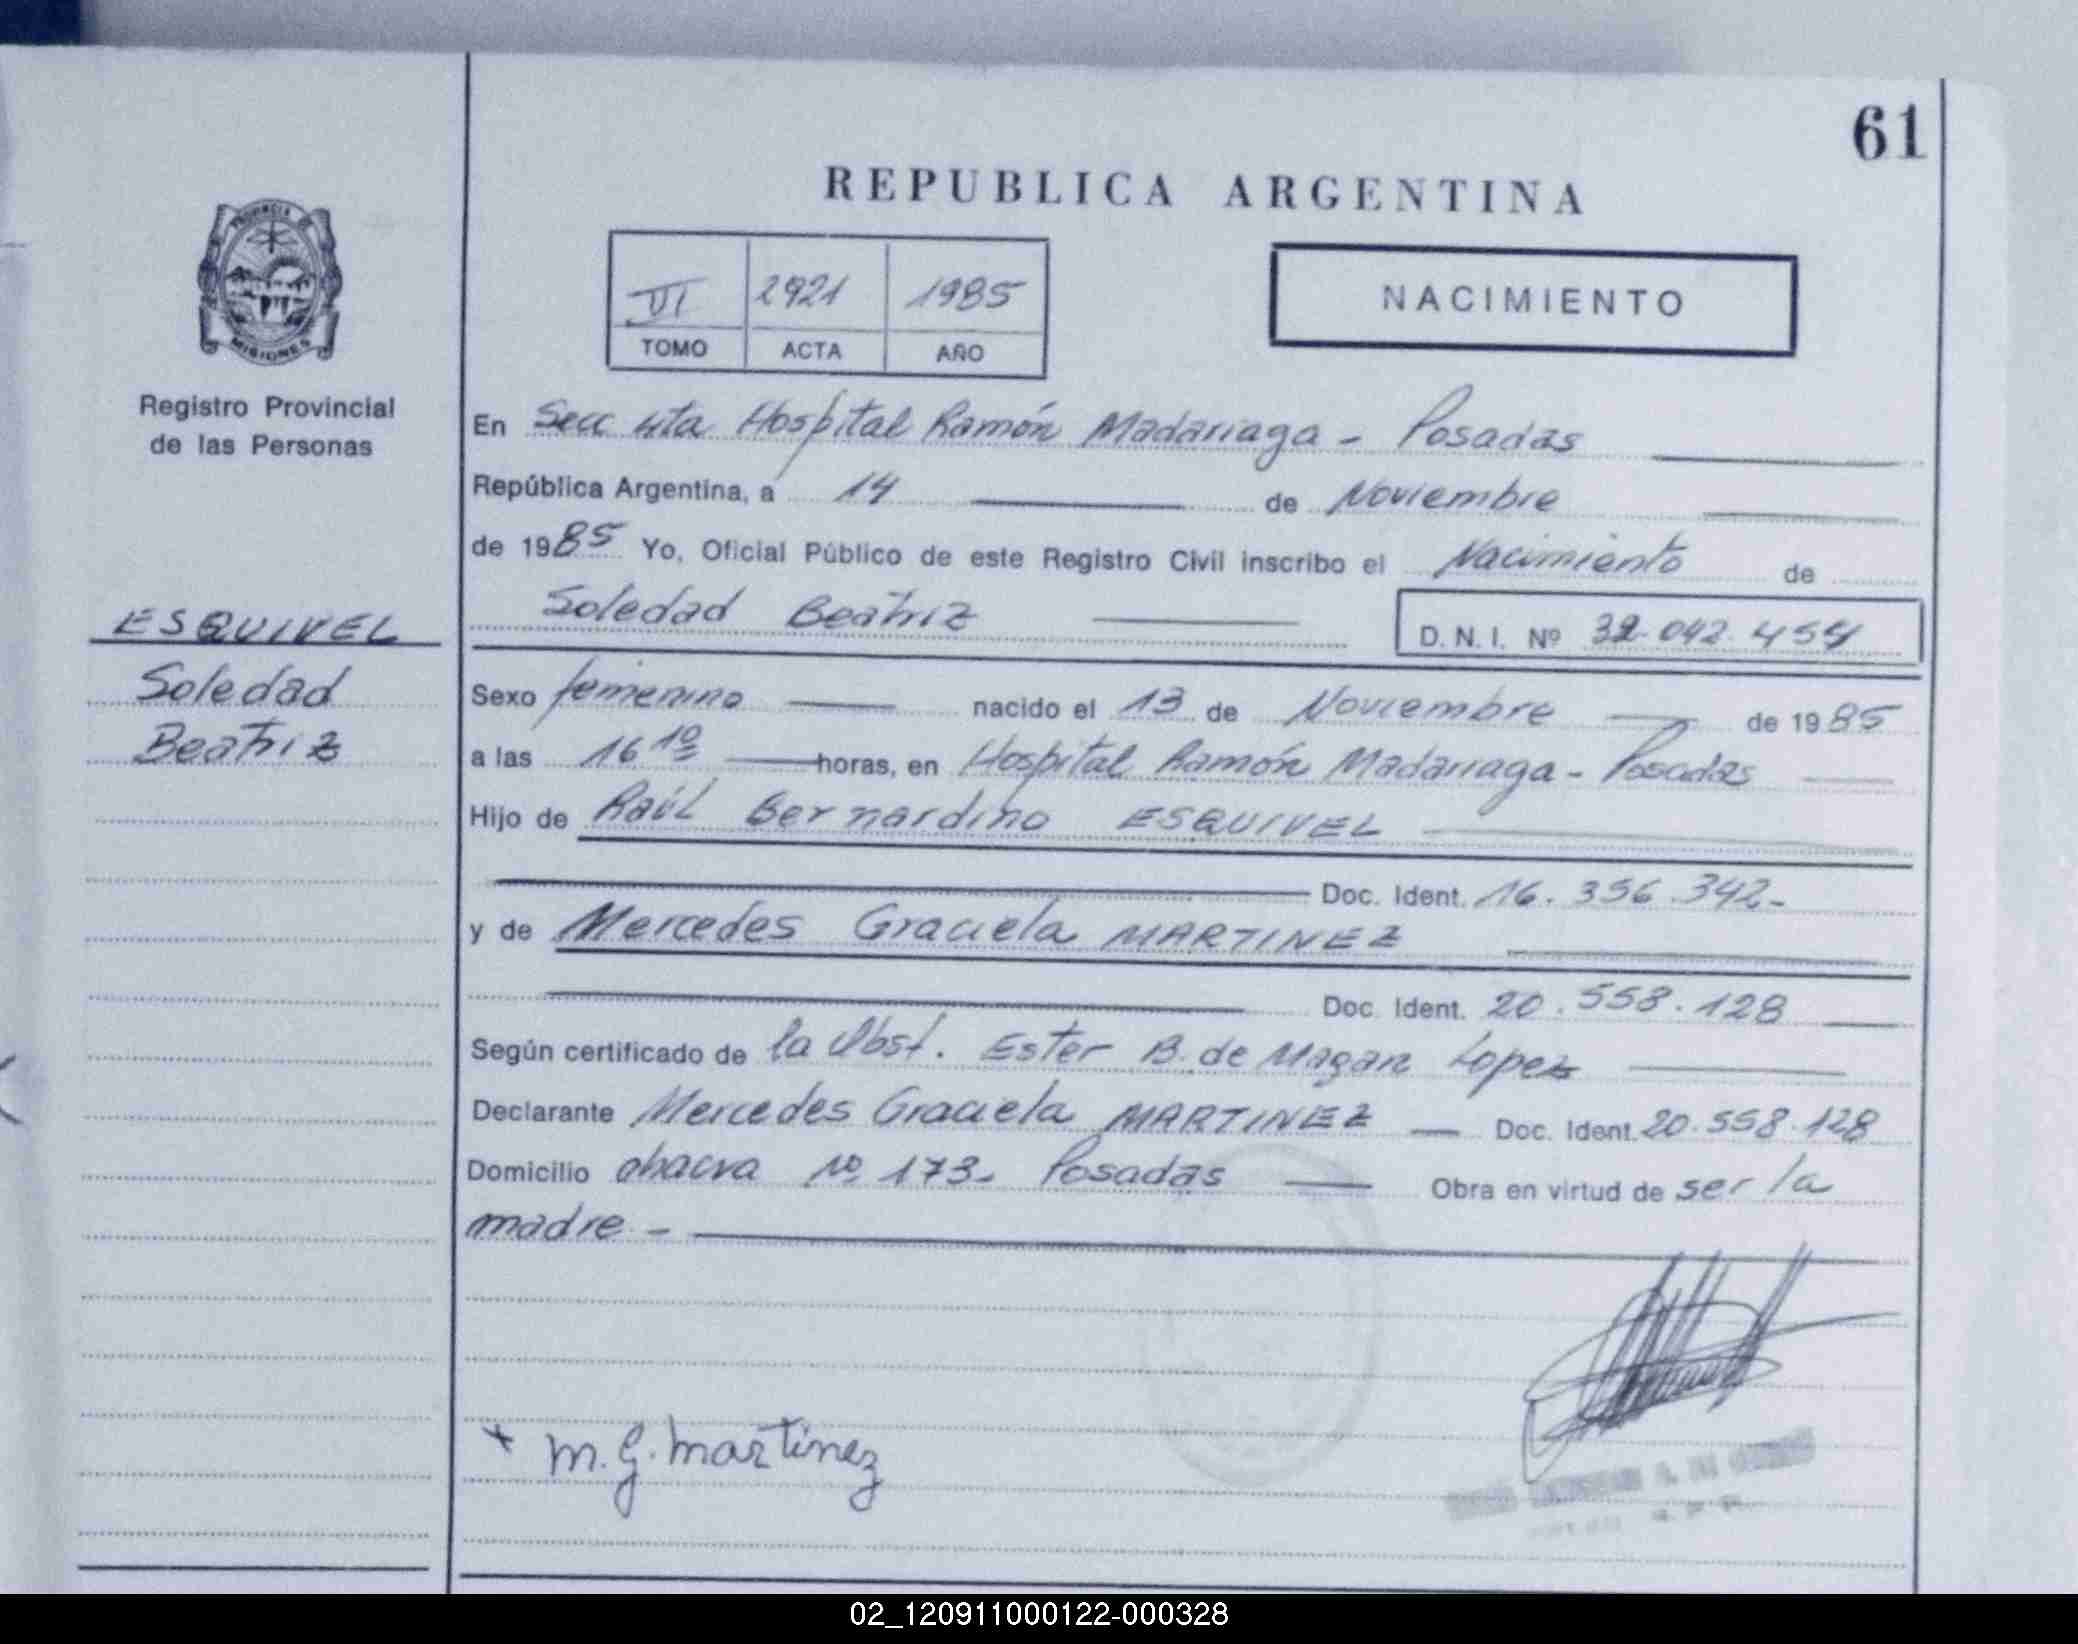 61
REPUBLICA ARGENTINA
PROVINCIA DE
MISIONES
VI 2921 1985
TOMO ACTA AÑO
NACIMIENTO
Registro Provincial
de las Personas
ESQUIVEL
Soledad
Beatriz
En Secc 4ta Hospital Ramón Madariaga - Posadas
República Argentina, a 14 de Noviembre
de 1985 Yo, Oficial Público de este Registro Civil inscribo el Nacimiento de
Soledad Beatriz D.N.I. Nº 32.042.454
Sexo femenino nacido el 13 de Noviembre de 1985
a las 16 10 horas, en Hospital Ramón Madariaga - Posadas
Hijo de Raúl Bernardino ESQUIVEL
Doc. Ident. 16.356.342-
y de Mercedes Graciela MARTINEZ
Doc. Ident. 20.558.128
Según certificado de la Obst. Ester B. de Magan Lopez
Declarante Mercedes Graciela MARTINEZ Doc. Ident. 20.558.128
Domicilio chacra Nº 173- Posadas Obra en virtud de ser la
madre -
M. G. Martinez
02_120911000122-000328